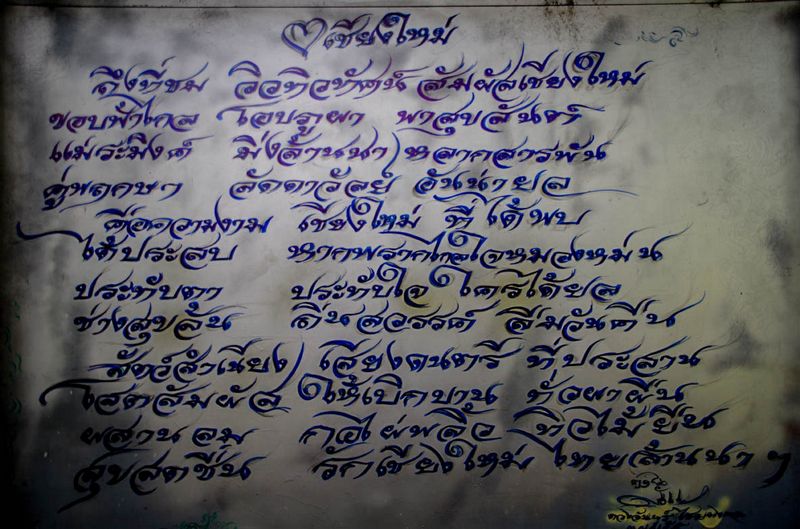 ♡เชียงใหม่
ถึงที่ชม วิวทิวทัศน์ สัมผัสเชียงใหม่
ขอบฟ้าไกล โอบภูผา พาสุขสันต์
แม่ระมิงค์ มิ่งล้านนา หลากสารพัน
คู่พฤกษา ลัดดาวัลย์ อันน่ายล
คือความงาม เชียงใหม่ ที่ได้พบ
ได้ประสบ หากพรากไกลใจหมองหม่น
ประทับตา ประทับใจ ใคร่ได้ยล
ช่างสุขล้น ถิ่นสวรรค์ ลืมวันคืน
สัตว์สำเนียง เสียงดนตรี ที่ประสาน
โสตสัมผัส ให้เบิกบาน ทั่วผาผืน
ผสานลม กอไผ่พลิ้ว ทิวไม้ยืน
สุขสดชื่น รักเชียงใหม่ ไทยล้านนา ๆ